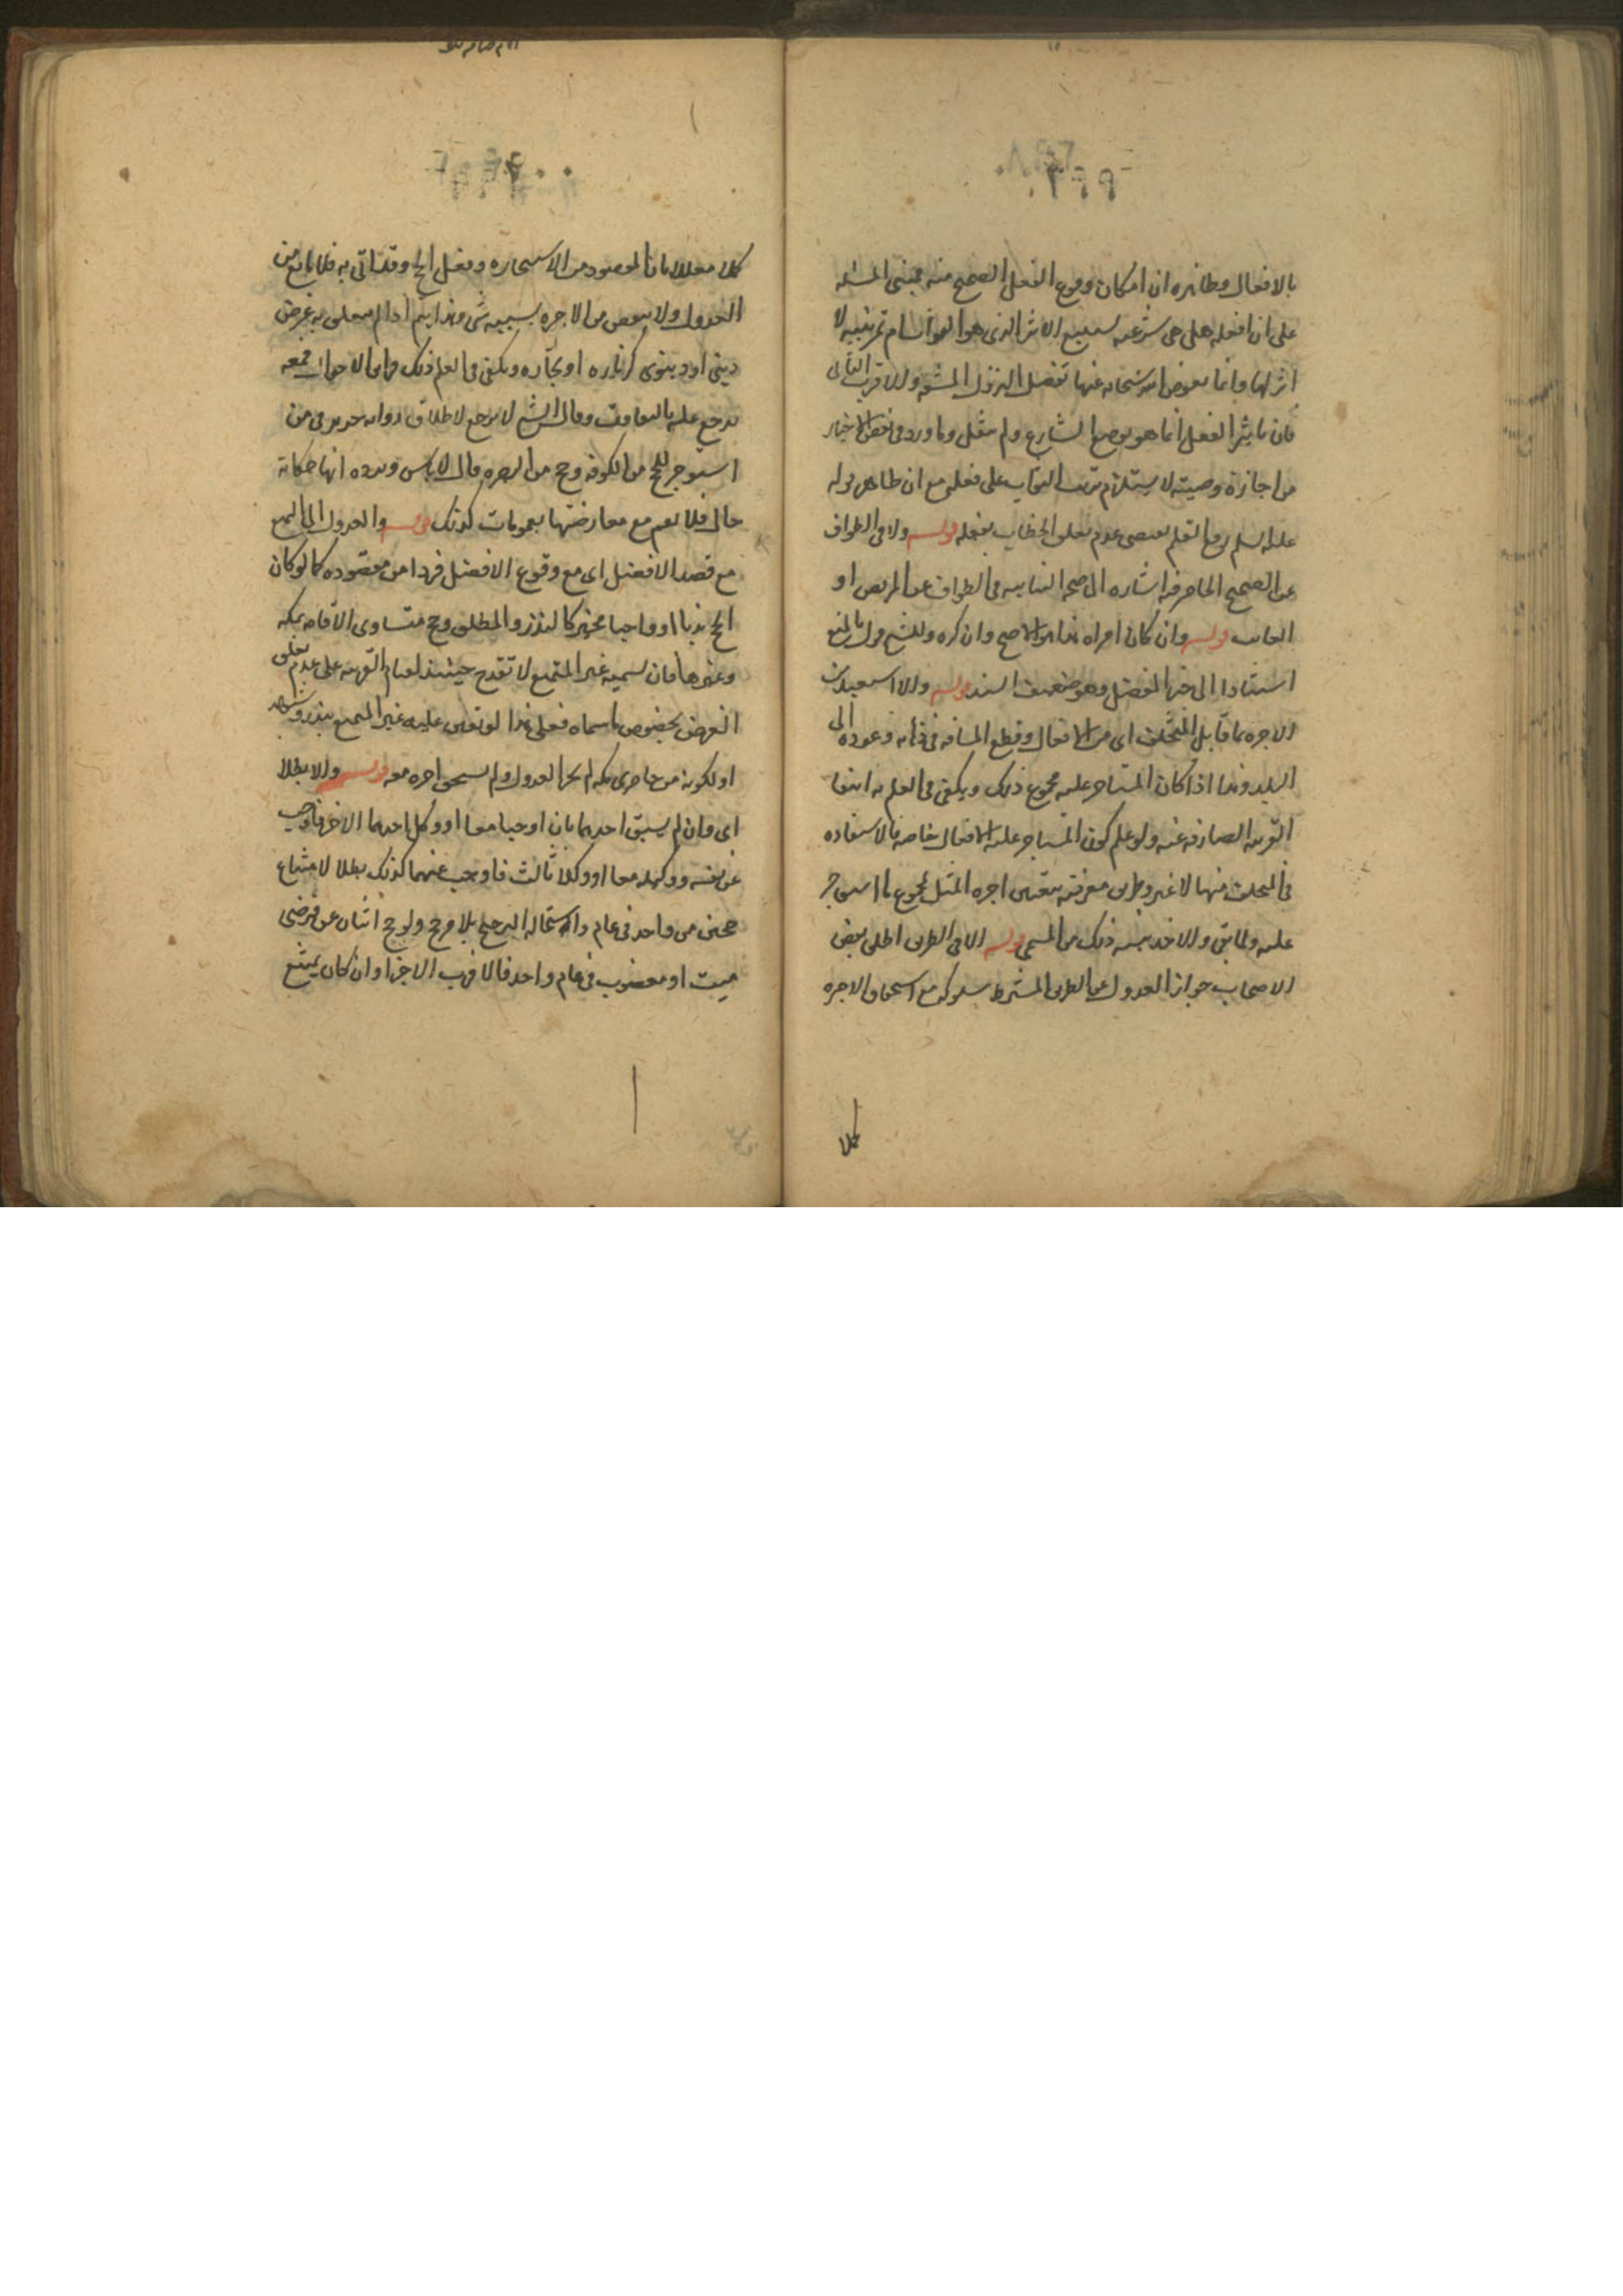 بالافعال وظاهره ان امكان وقوع الفعل الصحيح منه مبنى المسئله
على ان افعله هل هى شرعيه ام تمرينيه لا
اثر لها وانما يعوض الله سبحانه عنها تفضل المشقه والاقرب الثانى
فان تاثير الفعل انما هو بوضع الشارع ولم ينقل وما ورد فى بعض الاخبار
من اجازة وصيته لا يستلزم ترتب الثواب على فعله مع ان ظاهر قوله
عليه السلم رفع القلم يقتضى عدم تعلق الخطاب بفعله قوله ولا فى الطواف
عن الصحيح الحاضر فيه اشاره الى صحه النيابه فى الطواف عن المريض او
الغائب قوله وان كان امراه هذا هو الاصح وان كره وللشيخ قول بالمنع
استنادا الى خبر المفضل وهو ضعيف السند قوله والا استعيد من
الاجره بما قابل المتخلف اى من الافعال وقطع المسافه فى ذهابه وعوده الى
البلد وهذا اذا كان المستاجر عليه مجموع ذلك ويكفى فى العلم به انتفا
القرينه الصارفه عنه ولو علم كون المستاجر عليه الافعال خاصه فالاستعاده
فى المتخلف منها لا غير وطريق معرفته تقدير اجره المثل لمجموع ما استوجر
عليه ولما بقى والاخذ بنسبه ذلك من المسمى قوله الا فى الطريق اطلق بعض
الاصحاب جواز العدول عن الطريق المشترط سلوكه مع استحقاق الاجره
كملا
كملا معللا بان المقصود من الاستيجار هو فعل الحج وقد اتى به فلا مانع من
العدول ولا ينقص من الاجره بسببه شى وهذا يتم اذا لم يتعلق به غرض
دينى او دنيوى كزياره او تجاره ويكفى فى العلم ذلك قراين الاحوال فمعه
يرجع عليه بالتفاوت وقال الشيخ لا يرجع لاطلاق روايه حريز فى من
استوجر للحج من الكوفه وحج من البصره قال لا باس ويرده انها حكايه
حال فلا تعم مع معارضتها بعمومات كذلك قوله والعدول الى التمتع
مع قصد الافضل اى مع وقوع الافضل فردا من مقصوده كما لو كان
الحج ندبا او واجبا مخيرا كالنذر والمطلق وحج متساوى الاقامه بمكه
وغيرها فان تسميه غير التمتع لا تقدح حينئذ لقيام القرينه على عدم تعلق
الغرض بخصوص ما سماه فعلى هذا لو تعين عليه غير التمتع بنذر وشبهه
او لكونه من حاضرى مكه لم يجز العدول ولم يستحق اجره معه قوله والا بطلا
اى وان لم يسبق احدهما بان اوجبا معا او وكل احدهما الاخر فاوجب
عن نفسه وموكله معا او وكلا ثالث فاوجب عنهما كذلك بطلا لامتناع
حجتين من واحد فى عام واستحاله الترجيح بلا مرجح ولو حج اثنان عن فرضى
ميت او معضوب فى عام واحد فالاقرب الاجزا وان كان يمتنع